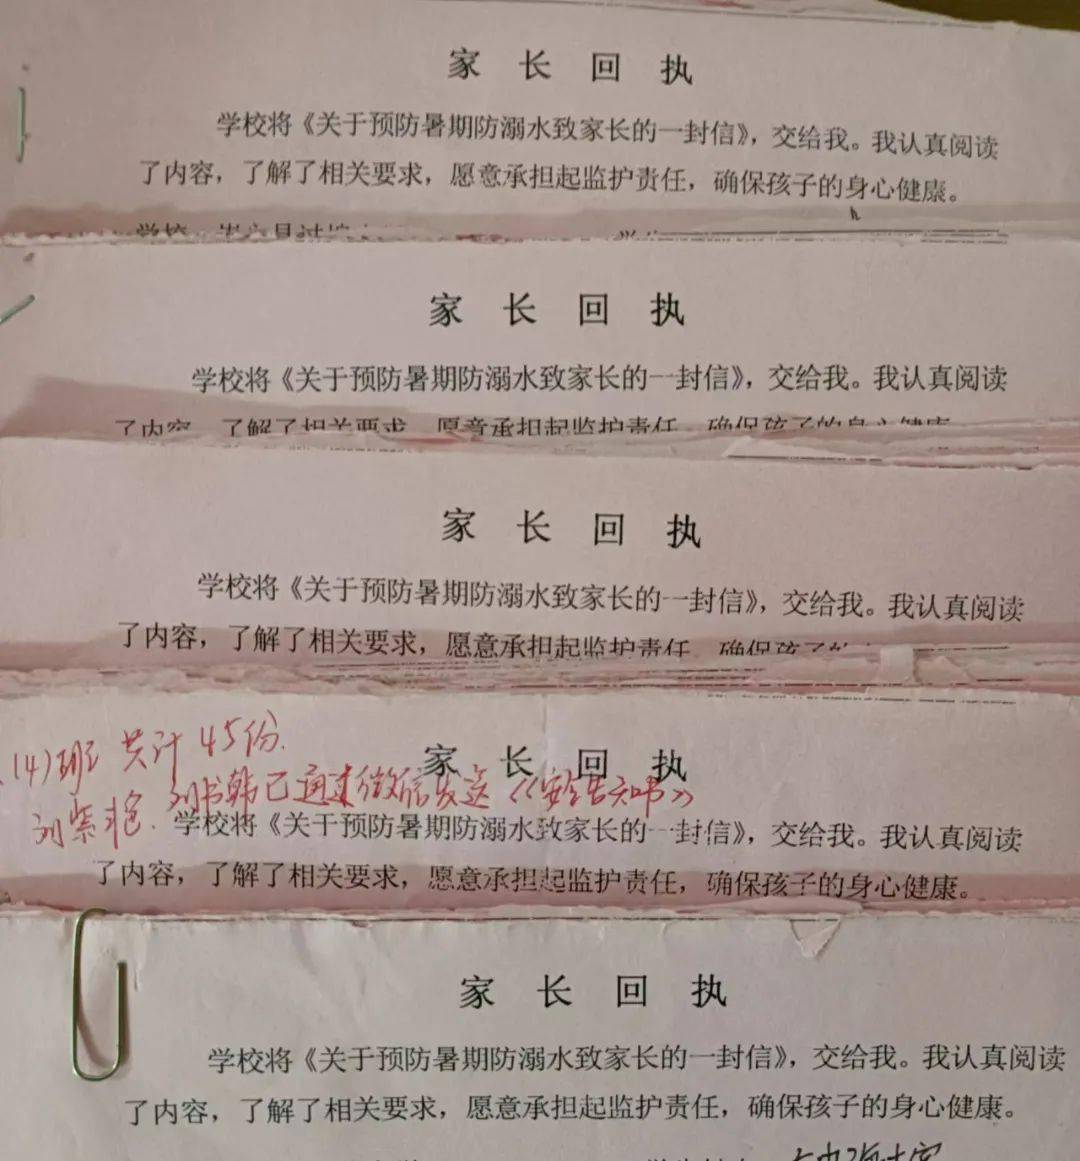 家长回执
学校将《关于预防暑期防溺水致家长的一封信》，交给我。我认真阅读
了内容，了解了相关要求，愿意承担起监护责任，确保孩子的身心健康。
家长回执
学校将《关于预防暑期防溺水致家长的一封信》，交给我。我认真阅读
了内容，了解了相关要求，愿意承担起监护责任，确保孩子的身心健康
家长回执
学校将《关于预防暑期防溺水致家长的一封信》，交给我。我认真阅读
了内容，了解了相关要求，愿意承担起监护责任，确保孩子的
(4)班 共计45份.
家长回执
已通过微信发送《安全告知书》
学校将《关于预防暑期防溺水致家长的一封信》，交给我。我认真阅读
了内容，了解了相关要求，愿意承担起监护责任，确保孩子的身心健康。
家长回执
学校将《关于预防暑期防溺水致家长的一封信》，交给我。我认真阅读
了内容，了解了相关要求，愿意承担起监护责任，确保孩子的身心健康。